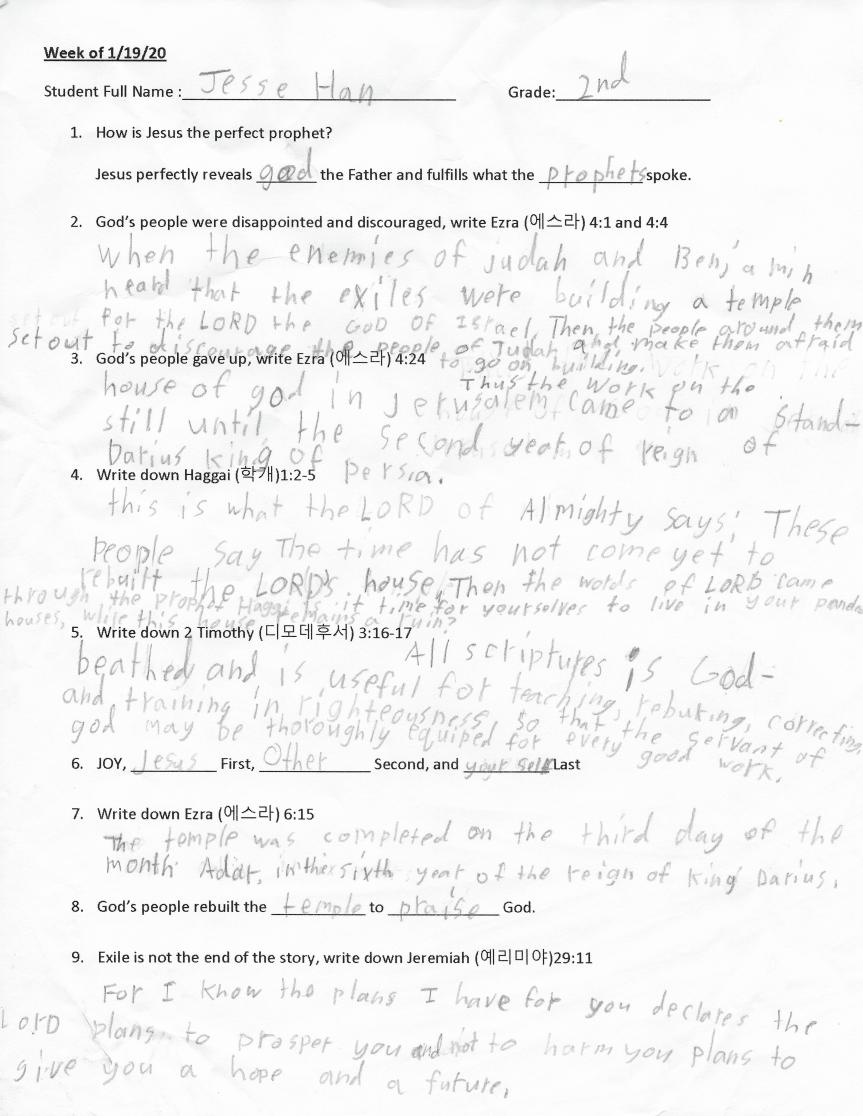 Week of 1/19/20
Student Full Name : Jesse Han Grade: 2nd
1. How is Jesus the perfect prophet?
Jesus perfectly reveals god the Father and fulfills what the prophets spoke.
2. God's people were disappointed and discouraged, write Ezra (에스라) 4:1 and 4:4
When the enemies of judah and Benjamin
heard that the exiles were building a temple
for the LORD the GOD OF Israel, Then, the people around them
set out to discourage the people of Judah and make them afraid
to go on building.
3. God's people gave up, write Ezra (에스라) 4:24
Thus the work on the
house of god in Jerusalem came to a stand-
still until the second year of reign of
Darius king of persia.
4. Write down Haggai (학개)1:2-5
this is what the LORD of Almighty says: These
people say The time has not come yet to
rebuilt the LORD's house, Then the words of LORD came
through the prophet Haggai Is it time for yourselves to live in your panda
houses, while this house remains a ruin?
5. Write down 2 Timothy (디모데후서) 3:16-17
All scriptures is God-
beathed and is useful for teaching, rebuting, correcting
and training in righteousness, so that the servant of
god may be thoroughly equiped for every good work.
6. JOY, Jesus First, Other Second, and your self Last
7. Write down Ezra (에스라) 6:15
The temple was completed on the third day of the
month Adar, in the sixth year of the reign of King Darius.
8. God's people rebuilt the temple to praise God.
9. Exile is not the end of the story, write down Jeremiah (예리미야)29:11
For I know the plans I have for you declares the
LORD plans to prosper you and not to harm you plans to
give you a hope and a future.